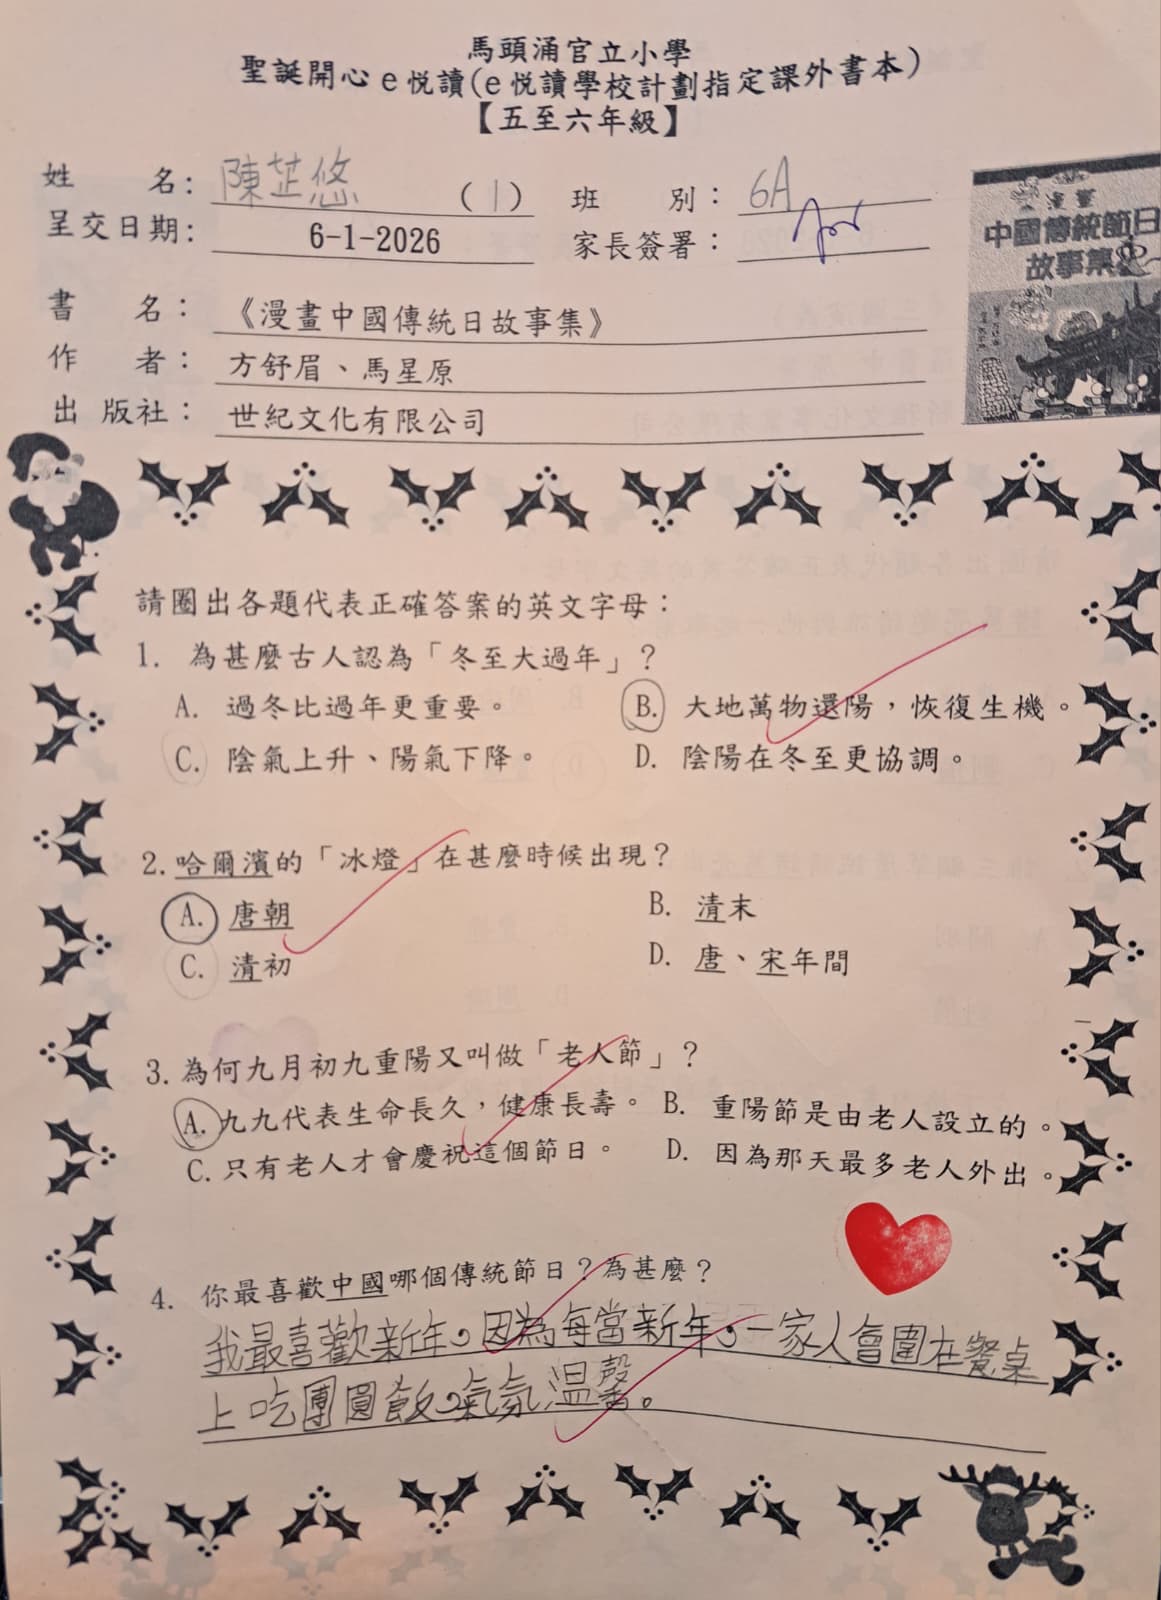 馬頭涌官立小學
聖誕開心e悅讀(e悅讀學校計劃指定課外書本)
【五至六年級】
姓 名: 陳芷悠 (1) 班 別: 6A
呈交日期: 6-1-2026 家長簽署:
漫畫
中國傳統節日
故事集
書 名: 《漫畫中國傳統日故事集》
作 者: 方舒眉、馬星原
出 版社: 世紀文化有限公司
請圈出各題代表正確答案的英文字母:
1. 為甚麼古人認為「冬至大過年」?
A. 過冬比過年更重要。 B. 大地萬物還陽,恢復生機。
C. 陰氣上升、陽氣下降。 D. 陰陽在冬至更協調。
2. 哈爾濱的「冰燈」在甚麼時候出現?
A. 唐朝 B. 清末
C. 清初 D. 唐、宋年間
3. 為何九月初九重陽又叫做「老人節」?
A. 九九代表生命長久,健康長壽。 B. 重陽節是由老人設立的。
C. 只有老人才會慶祝這個節日。 D. 因為那天最多老人外出。
4. 你最喜歡中國哪個傳統節日?為甚麼?
我最喜歡新年,因為每當新年,一家人會圍在餐桌
上吃團圓飯,氣氛溫馨。